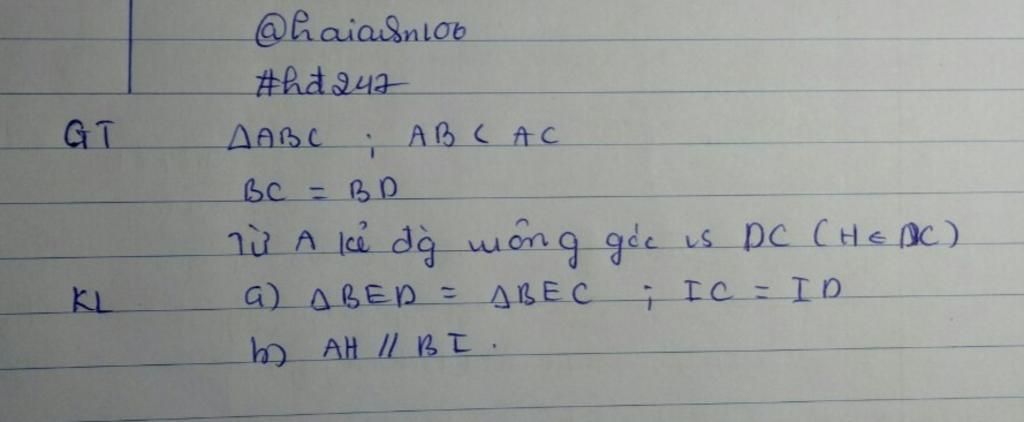 @haiasn106
#hđ247
GT ΔABC ; AB < AC
BC = BD
Từ A kẻ đg vuông góc vs DC (H ∈ DC)
KL a) ΔBED = ΔBEC ; IC = ID
b) AH // BI.